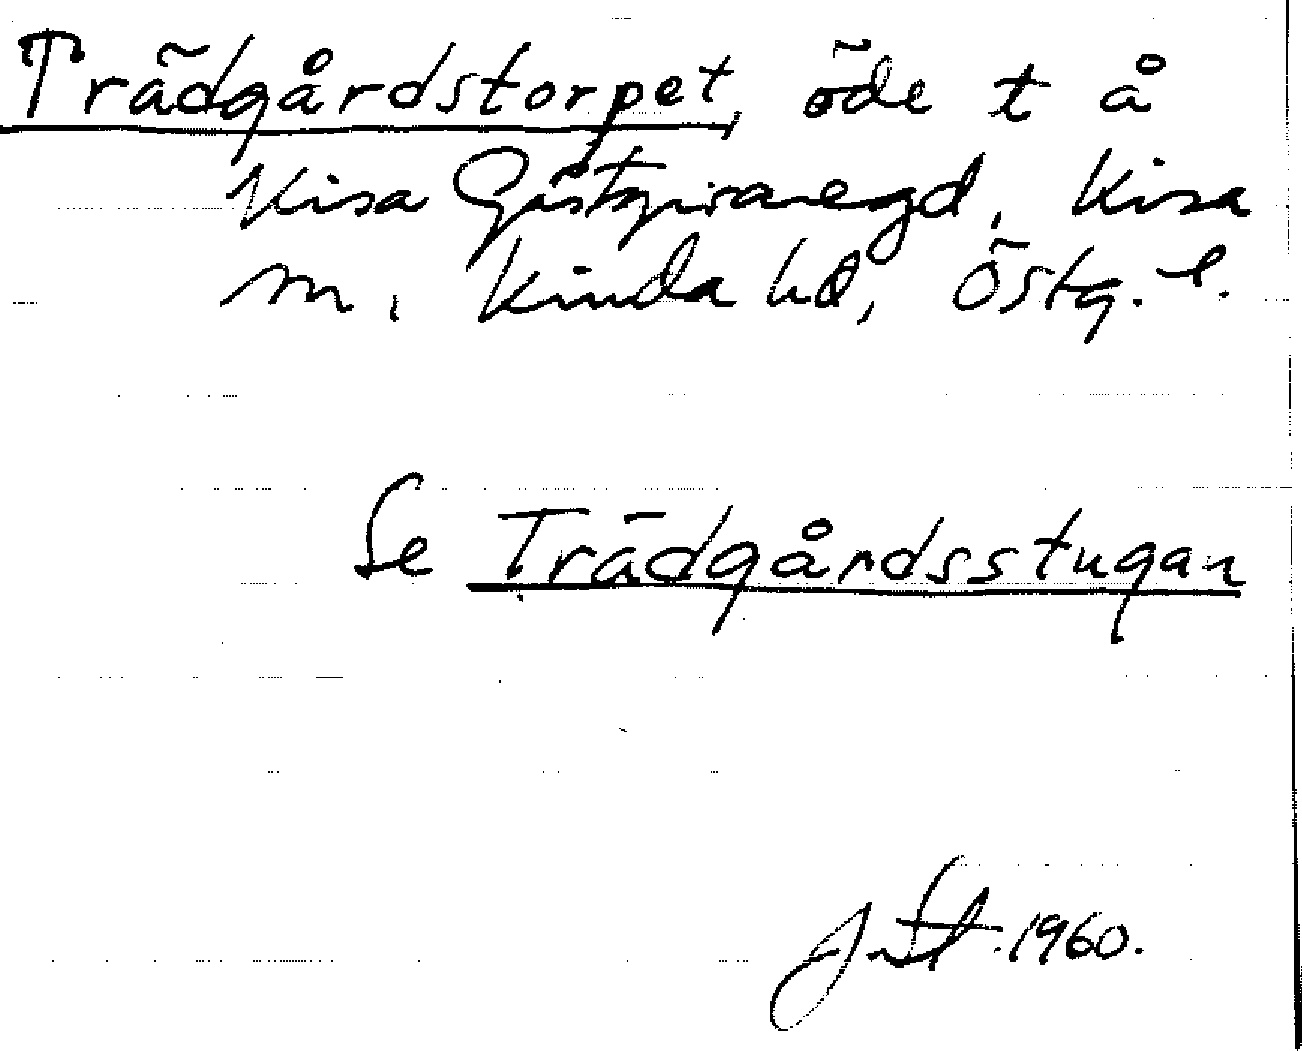 Trädgårdstorpet, öde t å
Kisa Gästgivaregd, Kisa
sn, Kinda hd, Östg. l.
Se Trädgårdsstugan
1960.